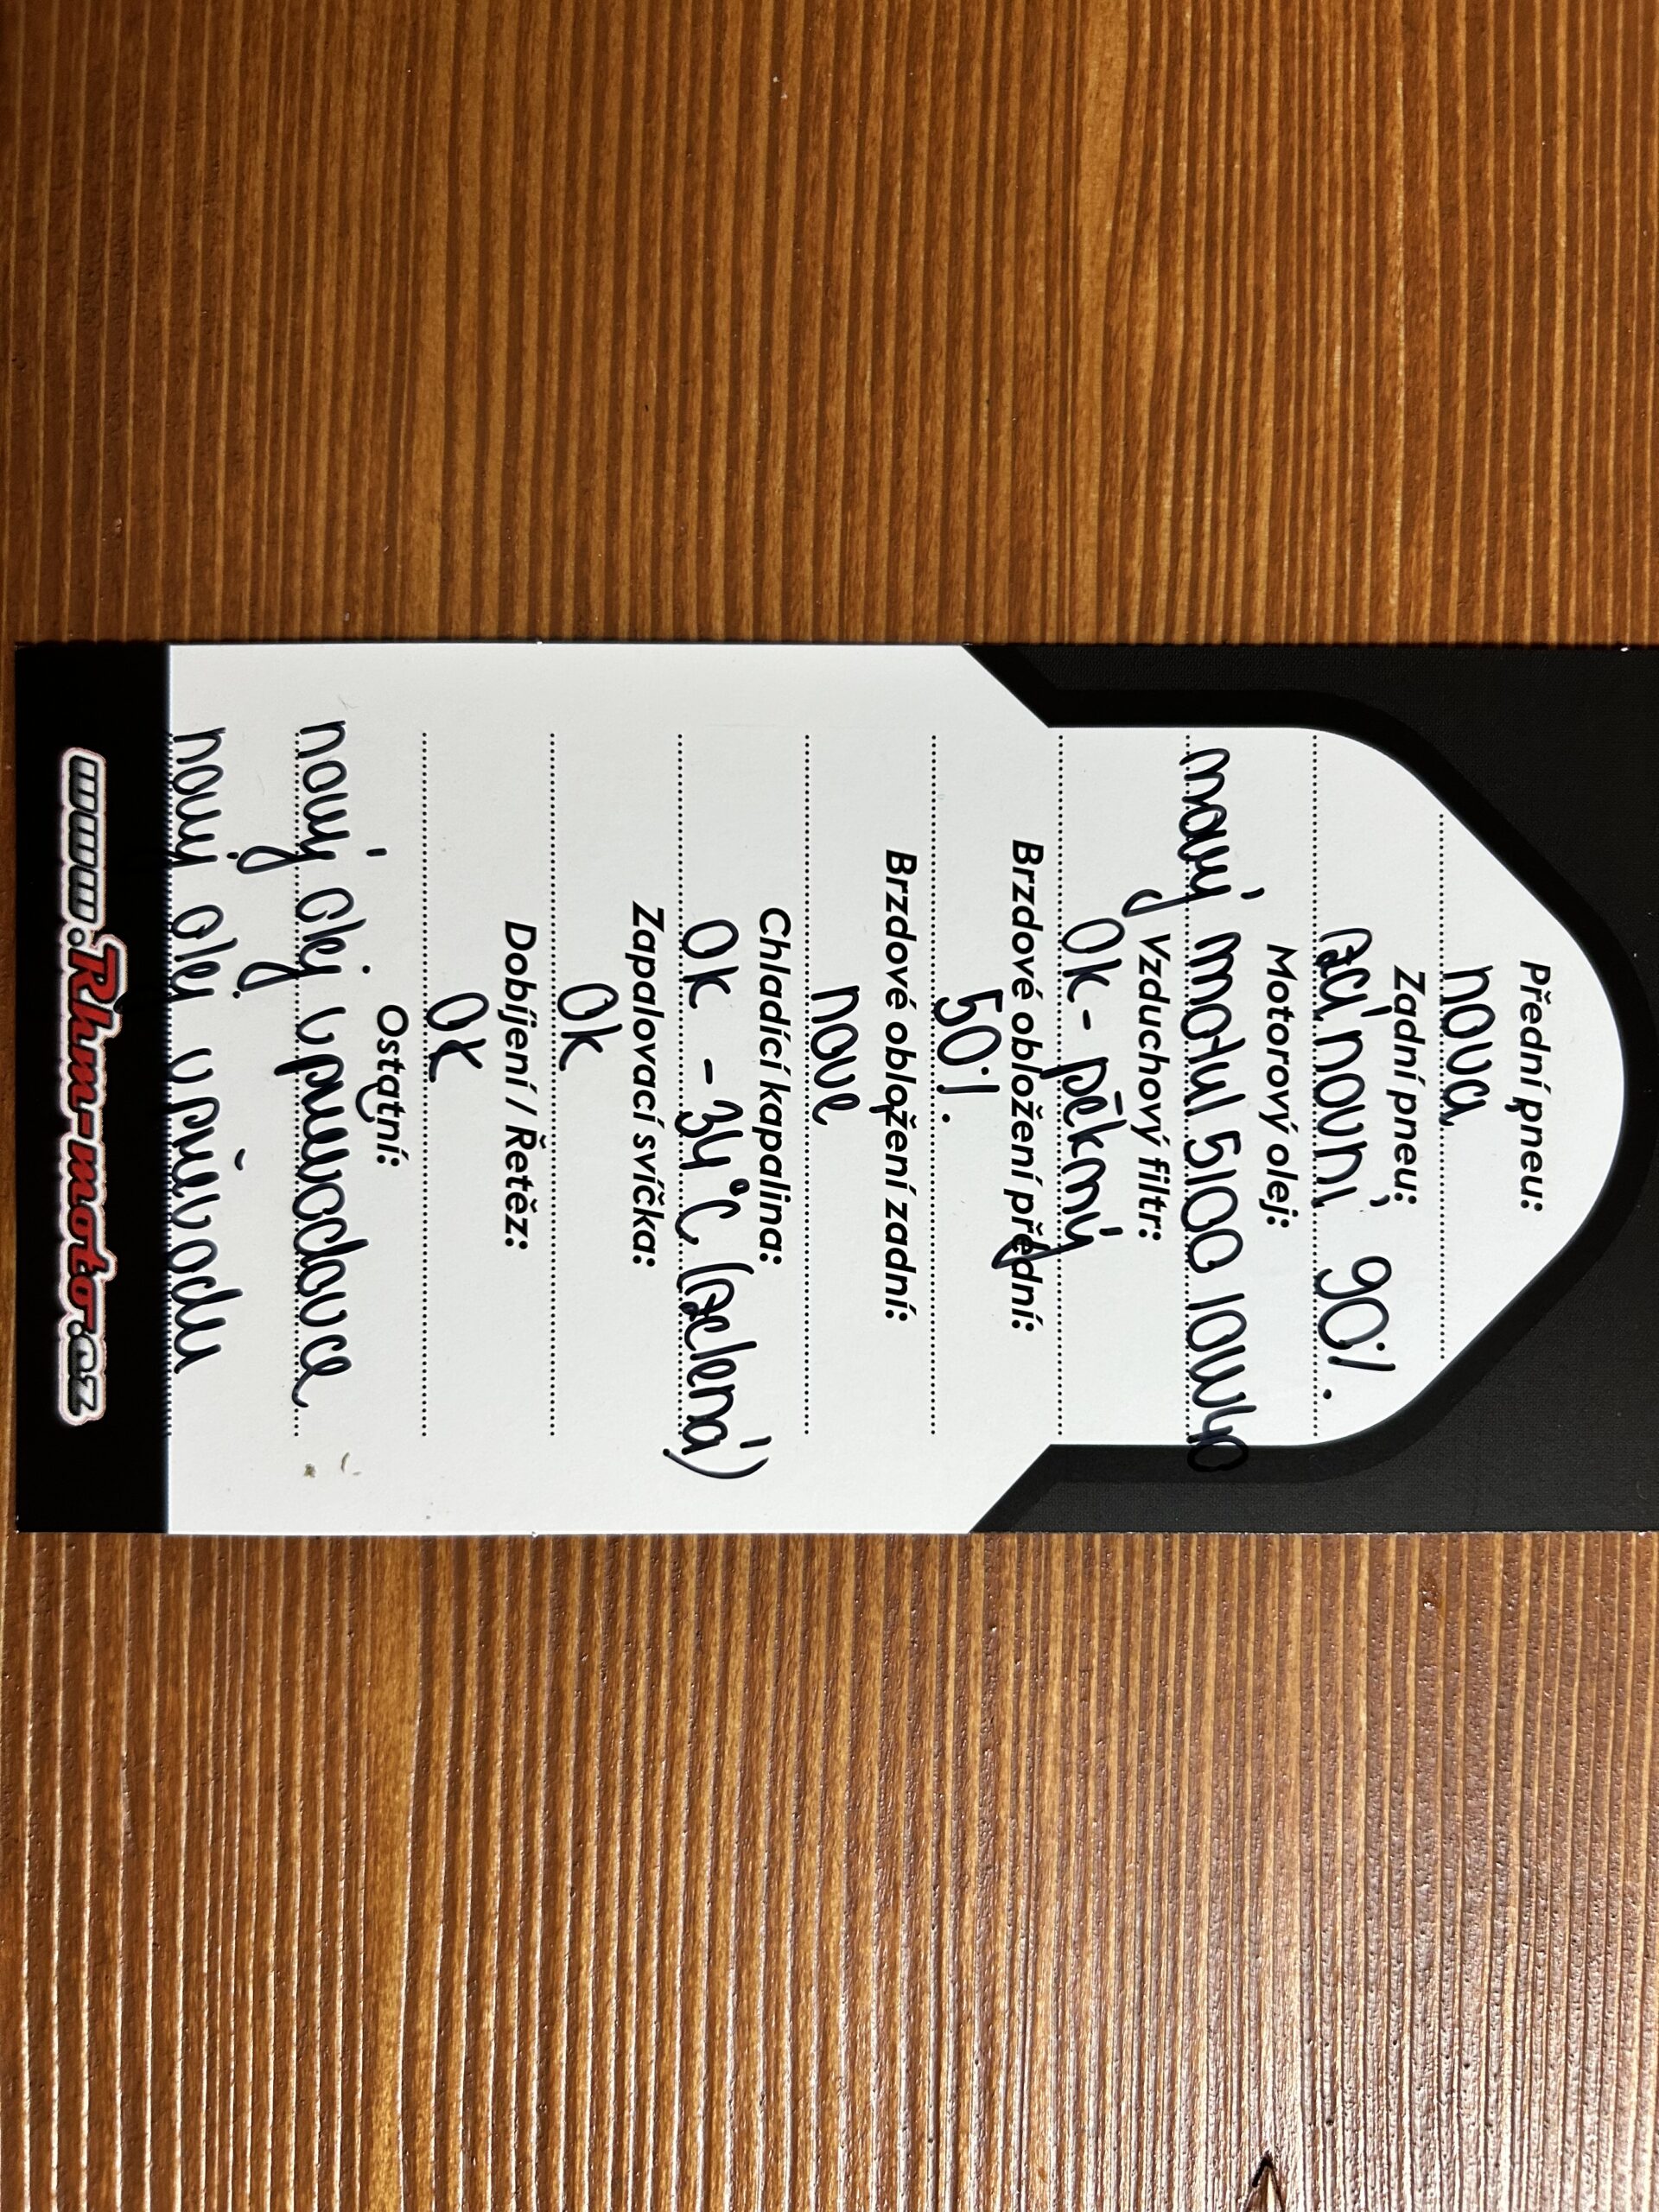 Přední pneu:
nova
Zadní pneu:
zánovní 90%.
Motorový olej:
nový motul 5100 10w40
Vzduchový filtr:
Ok - pěkný
Brzdové obložení přední:
50%.
Brzdové obložení zadní:
nove
Chladící kapalina:
Ok -34°C (zelená)
Zapalovací svíčka:
Ok
Dobíjení / Řetěz:
Ok
Ostatní:
nový olej v převodovce
nový olej v převodu
www.Rhm-moto.cz